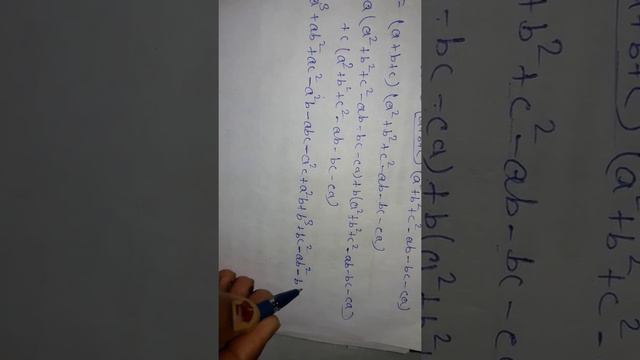 (a+b+c) (a²+b²+c²-ab-bc-ca)
= (a+b+c) (a²+b²+c²-ab-bc-ca)
a(a²+b²+c²-ab-bc-ca)+b(a²+b²+c²-ab-bc-ca)
+c(a²+b²+c²-ab-bc-ca)
a³+ab²+ac²-a²b-abc-a²c+a²b+b³+bc²-ab²-b